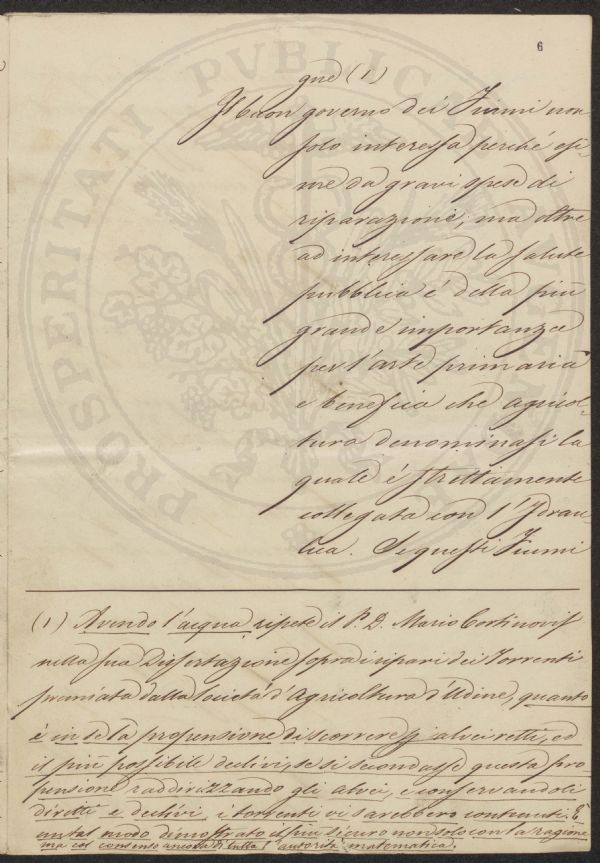 6
gue (1)
Il buon governo dei Fiumi non
solo interessa perché esi-
me da gravi spese di
riparazione; ma oltre
ad interessare la salute
pubblica é della più
grande importanza
per l'arte primaria
e benefica che agricol-
tura denominasi la
quale é strettamente
collegata con l'Idrau-
lica. Se questi Fiumi
(1) Avendo l'acqua ripete il P. D. Mario Cortinovis
nella sua Dissertazione sopra i ripari dei Torrenti
premiata dalla Società d'Agricoltura d'Udine, quanto
è in se la propensione di scorrere alvei retti, ed
il più possibile declivi, se si secondasse questa pro-
pensione raddirizzando gli alvei, e conservandoli
diretti e declivi, i torrenti vi sarebbero contenuti. E
in tal modo dimostrato il più sicuro non solo con la ragione
ma col consenso ancora di tutta l'autorità matematica.
PROSPERITATI PVBLICAE AVGENDAE